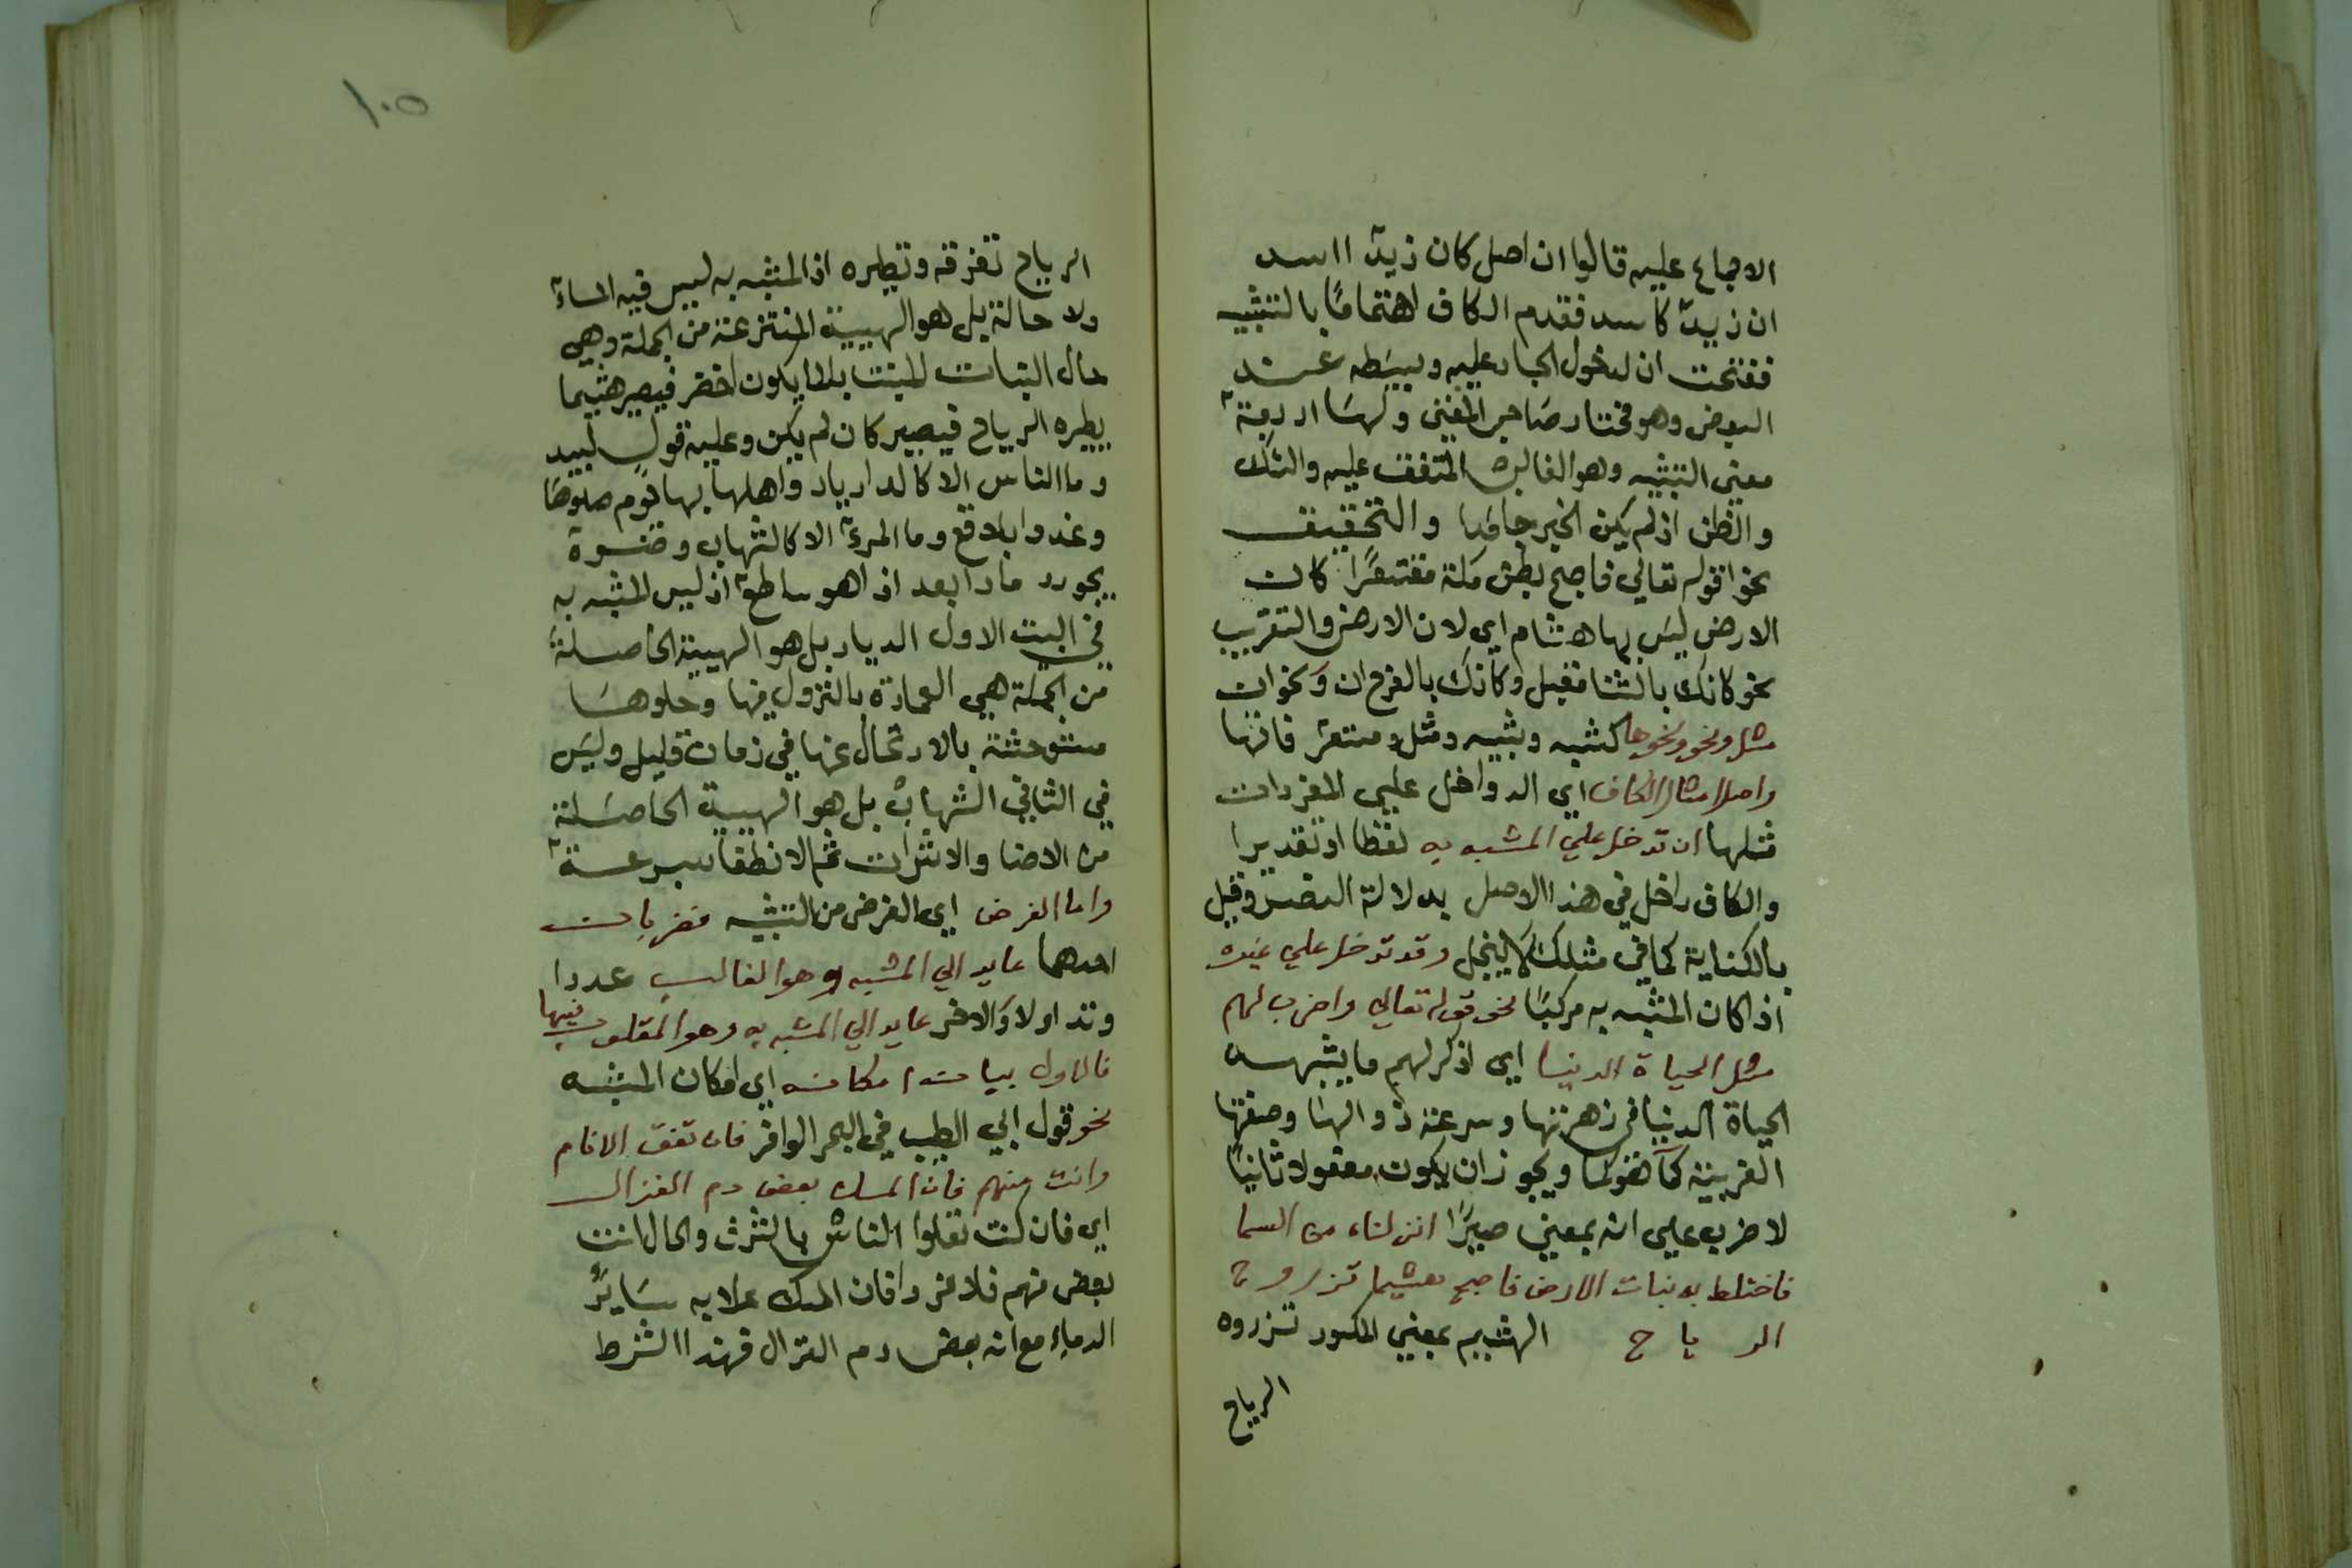 الاجماع عليه قالوا ان اصل كان زيدٌ ااسد
ان زيدٌ كاسد فقدم الكاف اهتمامًا بالتشبيه
ففتحت ان لدخول الجار عليه وبيسَطه عند
البعض وهو مختار صَاحب المغني ولهَا اربعة
معني التشبيه وهو الغالب المتفق عليه والشك
والظن اذ لم يكن الخبر جامدا والتحقيق
نحوا قوله تعالي فاصبح بطن مكة مقشعرًا كان
الارض ليسَ بها هشام اي لان الارض والتقريب
نحو كانك بالشتا مقبل وكانك بالفرح ان ونحوان
مثل ونحو ونحوها كشبه وشبيه ومثل
واصل امثال الكاف اي الدواخل علي المفردات
مثلها ان تدخل علي المشبه به لفظا او تقديرا
والكاف داخل في هذا الاصل بدلالة النص وقيل
بالكناية كما في مثلك لا يبخل وقد تدخل علي غيره
اذا كان المشبه به مركبًا نحو قوله تعالي واضرب لهم
مثل الحياة الدنيا اي اذكر لهم ما يشبهه
الحياة الدنيا في زهرتها وسرعة زوالها وصفتها
الغريبة كما ويجوز ان يكون مفعولا ثانيًا
لاضرب علي انه بمعني صيرًا انزلناه من السما
فاختلط به نبات الارض فاصبح هشيما تذروح
الرياح الهشيم بمعني المكسور تذروه
الرياح
١٠٥
الرياح تفرقه وتطيره اذ المشبه به ليس فيه الماءٓ
ولا حالة بل هو الهيية المنتزعة من الجملة وهي
حال النبات المنبت بالما يكون اخضر فيصير هشيما
يطيره الرياح فيصير كان لم يكن وعليه قول لبيد
وما الناس الا كالديار واهلها بها يوم حلوهَا
وغدوا بلاقع وما المرءٓ الا كالشهاب وضوءه
يحور رمادا بعد اذا هو ساطعٓ اذ ليس المشبه به
في البيت الاول الديار بل هو الهيية الحاصلة
من الجملة هي العمارة بالنزول فيها وحلوهَا
متوحشة بالارتحال عنها في زمان قليل وليسَ
في الثاني الشهاب بل هو الهيية الحاصَلة
من الاضا والانثرات ثم الانطفا بسرعة
واما الغرض اي الغرض من التشبيه فضربان
احدهما عايد الي المشبه وهو الغالب عددا
وتداولا والاخر عايد الي المشبه به وهو المقلوب فيها
فالاول بيان امكانه اي امكان المشبه
نحو قول ابي الطيب في البحر الوافر فان تفق الانام
وانت منهم فان المسك بعض دم الغزال
اي فان كنت تعلوا الناس بالشرف والحال انت
بعض منهم فلا غروا فان المسك علا به سَايرُ
الدماء مع انه بعض دم الغزال فهذا الشرط